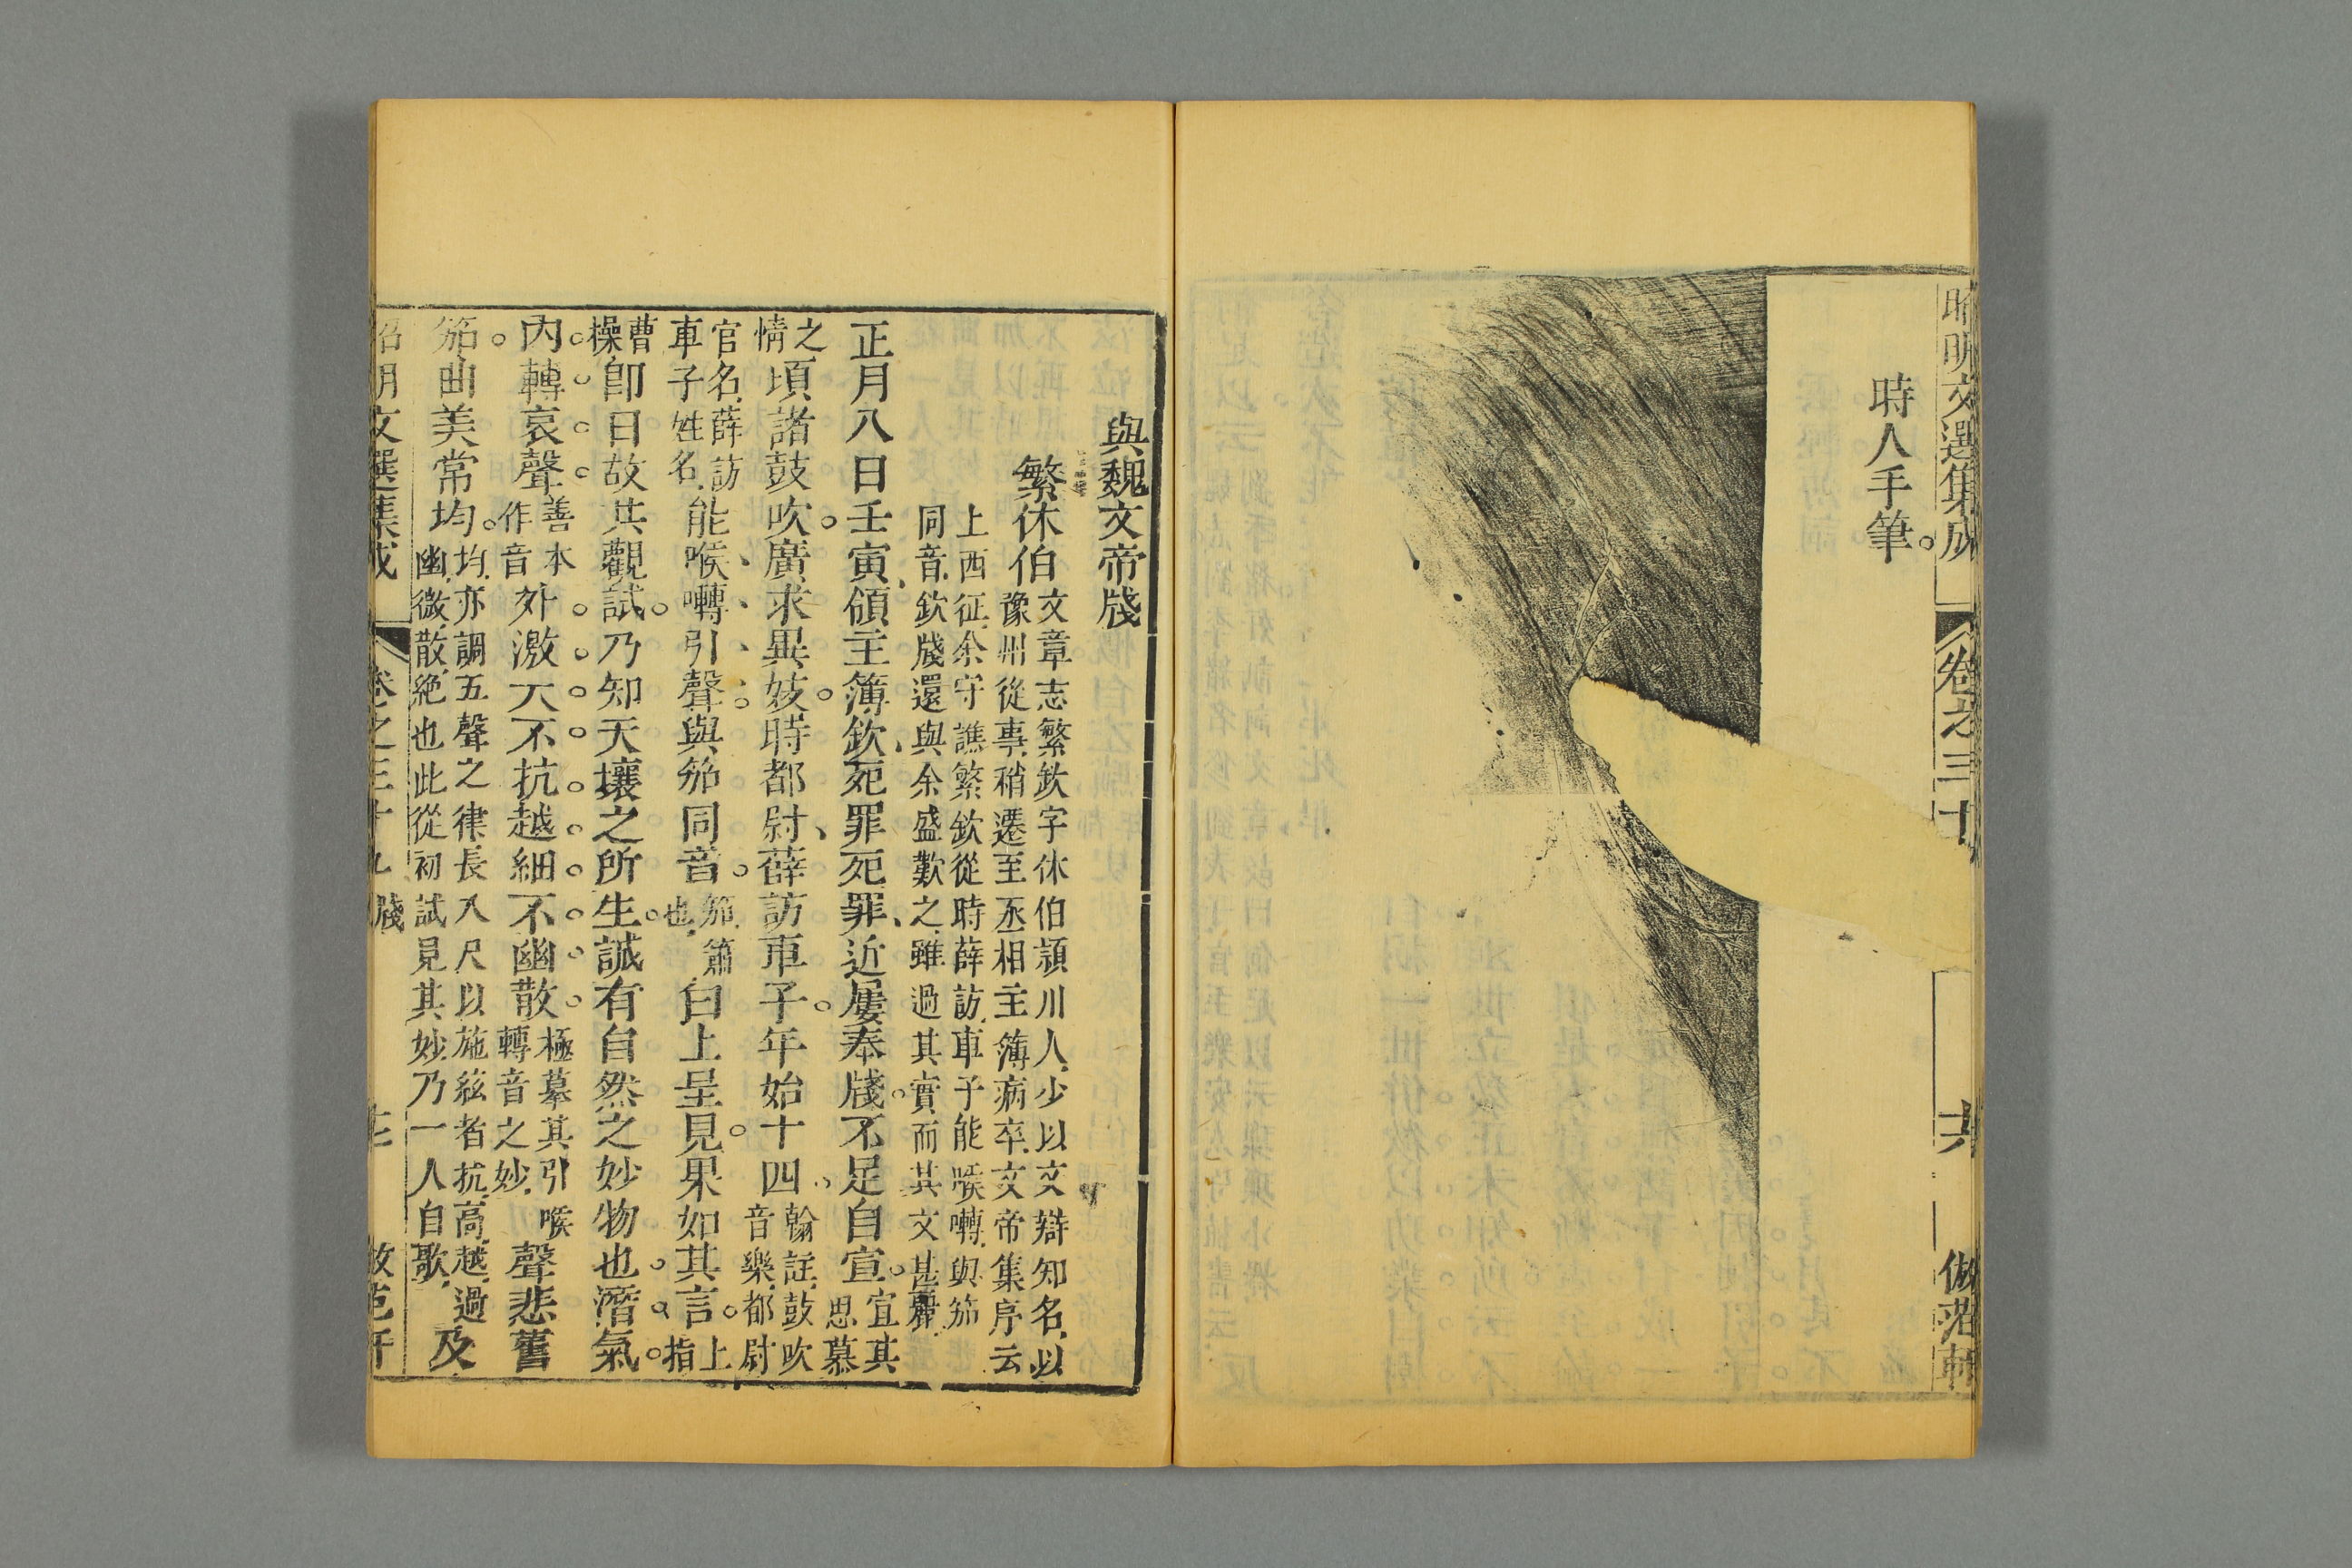 昭明文選集成 卷之三十 共 倣范軒
時人手筆。
與魏文帝牋
繁休伯
文章志繁欽字休伯潁川人少以文辯知名以
豫州從事稍遷至丞相主簿病卒文帝集序云
上西征余守譙繁欽從時薛訪車子能喉囀與笳
同音欽牋還與余盛歎之雖過其實而其文甚麗
正月八日壬寅領主簿欽死罪死罪近屢奉牋。不足自宣。
宜其
思慕
之
情
頃諸鼓吹。廣求異妓。時都尉薛訪車子。年始十四
翰註鼓吹
音樂都尉
官名薛訪
車子姓名
能喉囀引聲。與笳同音。
笳簫
也
白上呈見。果如其言。
上
指
曹
操
卽日故共觀試。乃知天壤之所生。誠有自然之妙物也。潛氣。
內轉。哀聲
善本
作音
外激。大不抗越。細不幽散。
極摹其引喉
轉音之妙
聲悲舊
笳。曲美常均。
均亦調五聲之律長八尺以施絃者抗高越過
幽微散絕也此從初試見其妙乃一人自歌
及
昭明文選集成 卷之三十九 牋 倣范軒